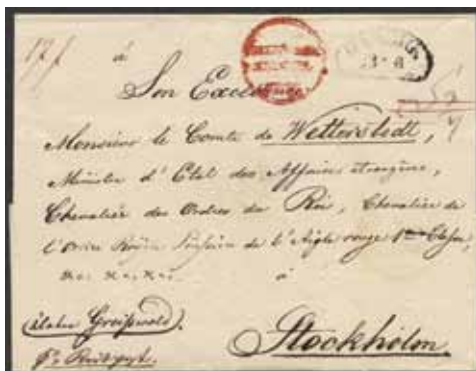 à
Son Excellence
Monsieur le Comte de Wetterstedt,
Ministre d'Etat des Affaires étrangères,
Chevalier des Ordres du Roi, Chevalier de
l'Ordre de l'Aigle rouge 1re Classe,
à
Stockholm.
Greifswald